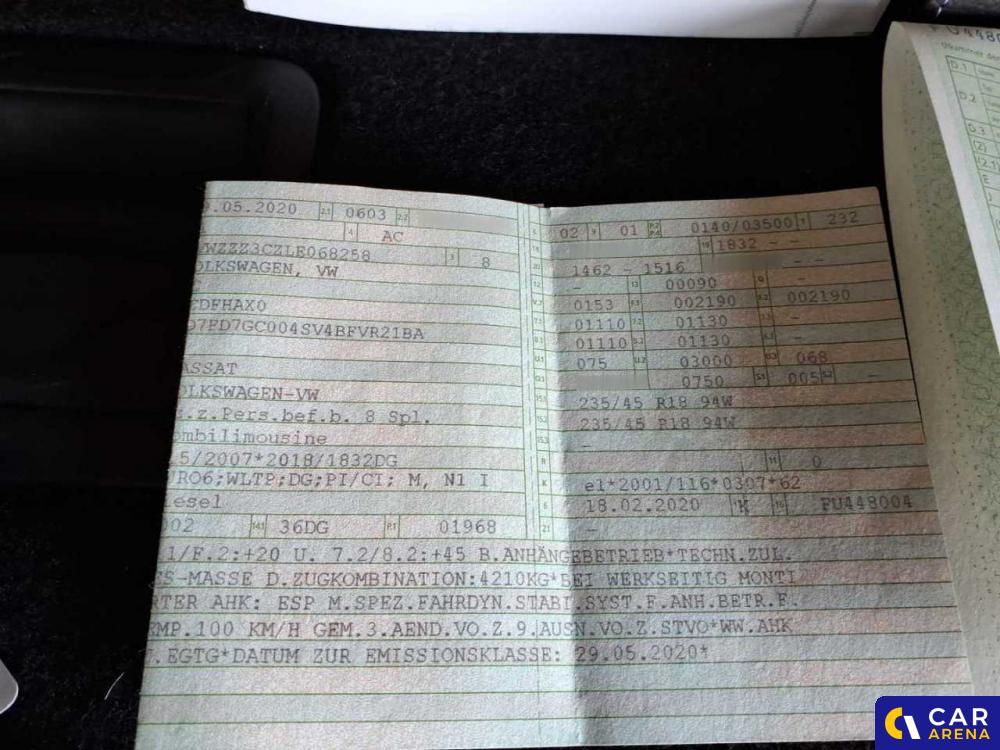 .05.2020 2.1 0603 2.2
4 AC
WZZZ3CZLE068258 3 8
OLKSWAGEN, VW
CDFHAX0
D7FD7GC004SV4BFVR21BA
ASSAT
OLKSWAGEN-VW
z.Pers.bef.b. 8 Spl.
ombilimousine
5/2007*2018/1832DG
URO6;WLTP;DG;PI/CI; M, N1 I
esel
002 14.1 36DG P.1 01968
02 9 01 0140/03500 232
1832 - -
1462 - 1516 - -
- 13 00090
0153 002190 002190
01110 01130 -
01110 01130 -
075 03000 068
0750 S.1 005 -
235/45 R18 94W
235/45 R18 94W
-
R 11 0
K e1*2001/116*0307*62
6 18.02.2020 K 16 FU448004
21 -
1/F.2:+20 U. 7.2/8.2:+45 B.ANHÄNGEBETRIEB*TECHN.ZUL.
ES-MASSE D.ZUGKOMBINATION:4210KG*BEI WERKSEITIG MONTI
RTER AHK: ESP M.SPEZ.FAHRDYN.STABI.SYST.F.ANH.BETR.F.
EMP.100 KM/H GEM.3.AEND.VO.Z.9.AUSN.VO.Z.STVO*WW.AHK
.EGTG*DATUM ZUR EMISSIONSKLASSE: 29.05.2020*
G4480
D.1
D.2
D.3
(2)
(2.1
E
CAR
ARENA